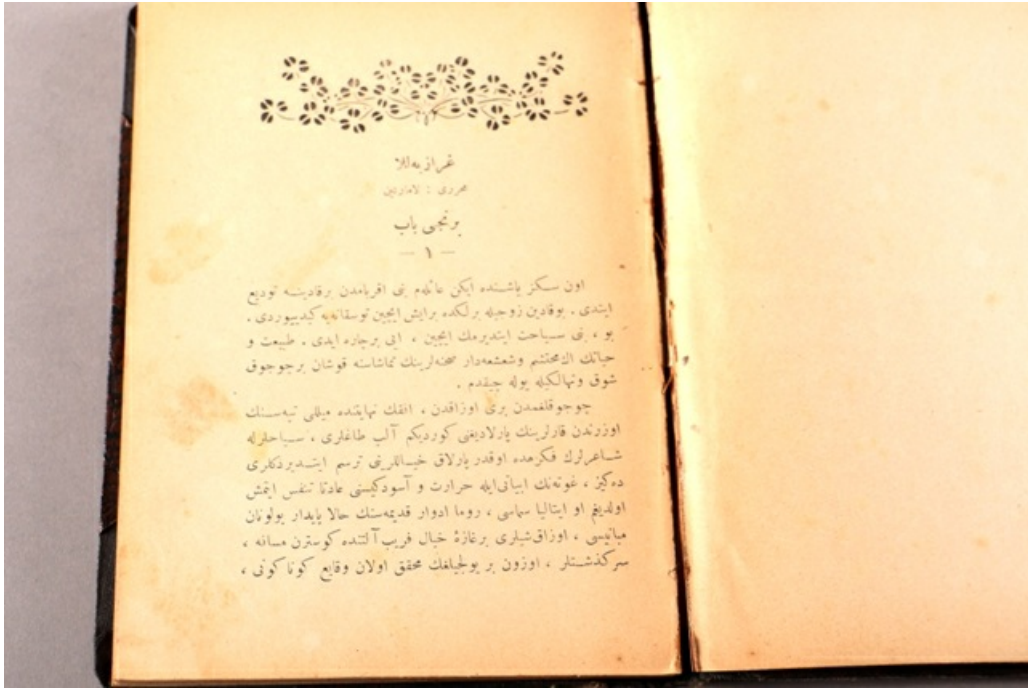 غرازیه‌للا
محرری : لامارتین
برنجی باب
— ١ —
اون سکز یاشنده ایکن عائله‌م بنی اقربامدن برقادینه تودیع
ایتدی . بوقادین زوجیله برلکده برایش ایچین توسقانه‌یه کیدییوردی .
بو ، بنی سیاحت ایتدیرمك ایچین ، ایی برچاره ایدی . طبیعت و
حیاتك اك محتشم وشعشعه‌دار صحنه‌لرینك تماشاسنه قوشان برچوجوق
شوق وتهالکیله یوله چیقدم .
چوجوقلغمدن بری اوزاقدن ، افقك نهایتنده میللی تپه‌سنك
اوزرندن قارلرینك پارلادیغنی کوردیکم آلپ طاغلری ، سیاحلرله
شاعرلرك فکرمده اوقدر پارلاق خیاللرینی ترسیم ایتدیردکلری
ده‌کیز ، غوته‌نك ابیاتی‌ایله حرارت و آسوده‌کیسنی عادتا تنفس ایتمش
اولدیغم او ایتالیا سماسی ، روما ادوار قدیمه‌سنك حالا پایدار بولونان
مبانیسی ، اوزاق‌شیلری برغازهٔ خیال فریب آلتنده کوسترن مسافه ،
سرکذشتلر ، اوزون بر یولجیلغك محقق اولان وقایع کوناکونی ،